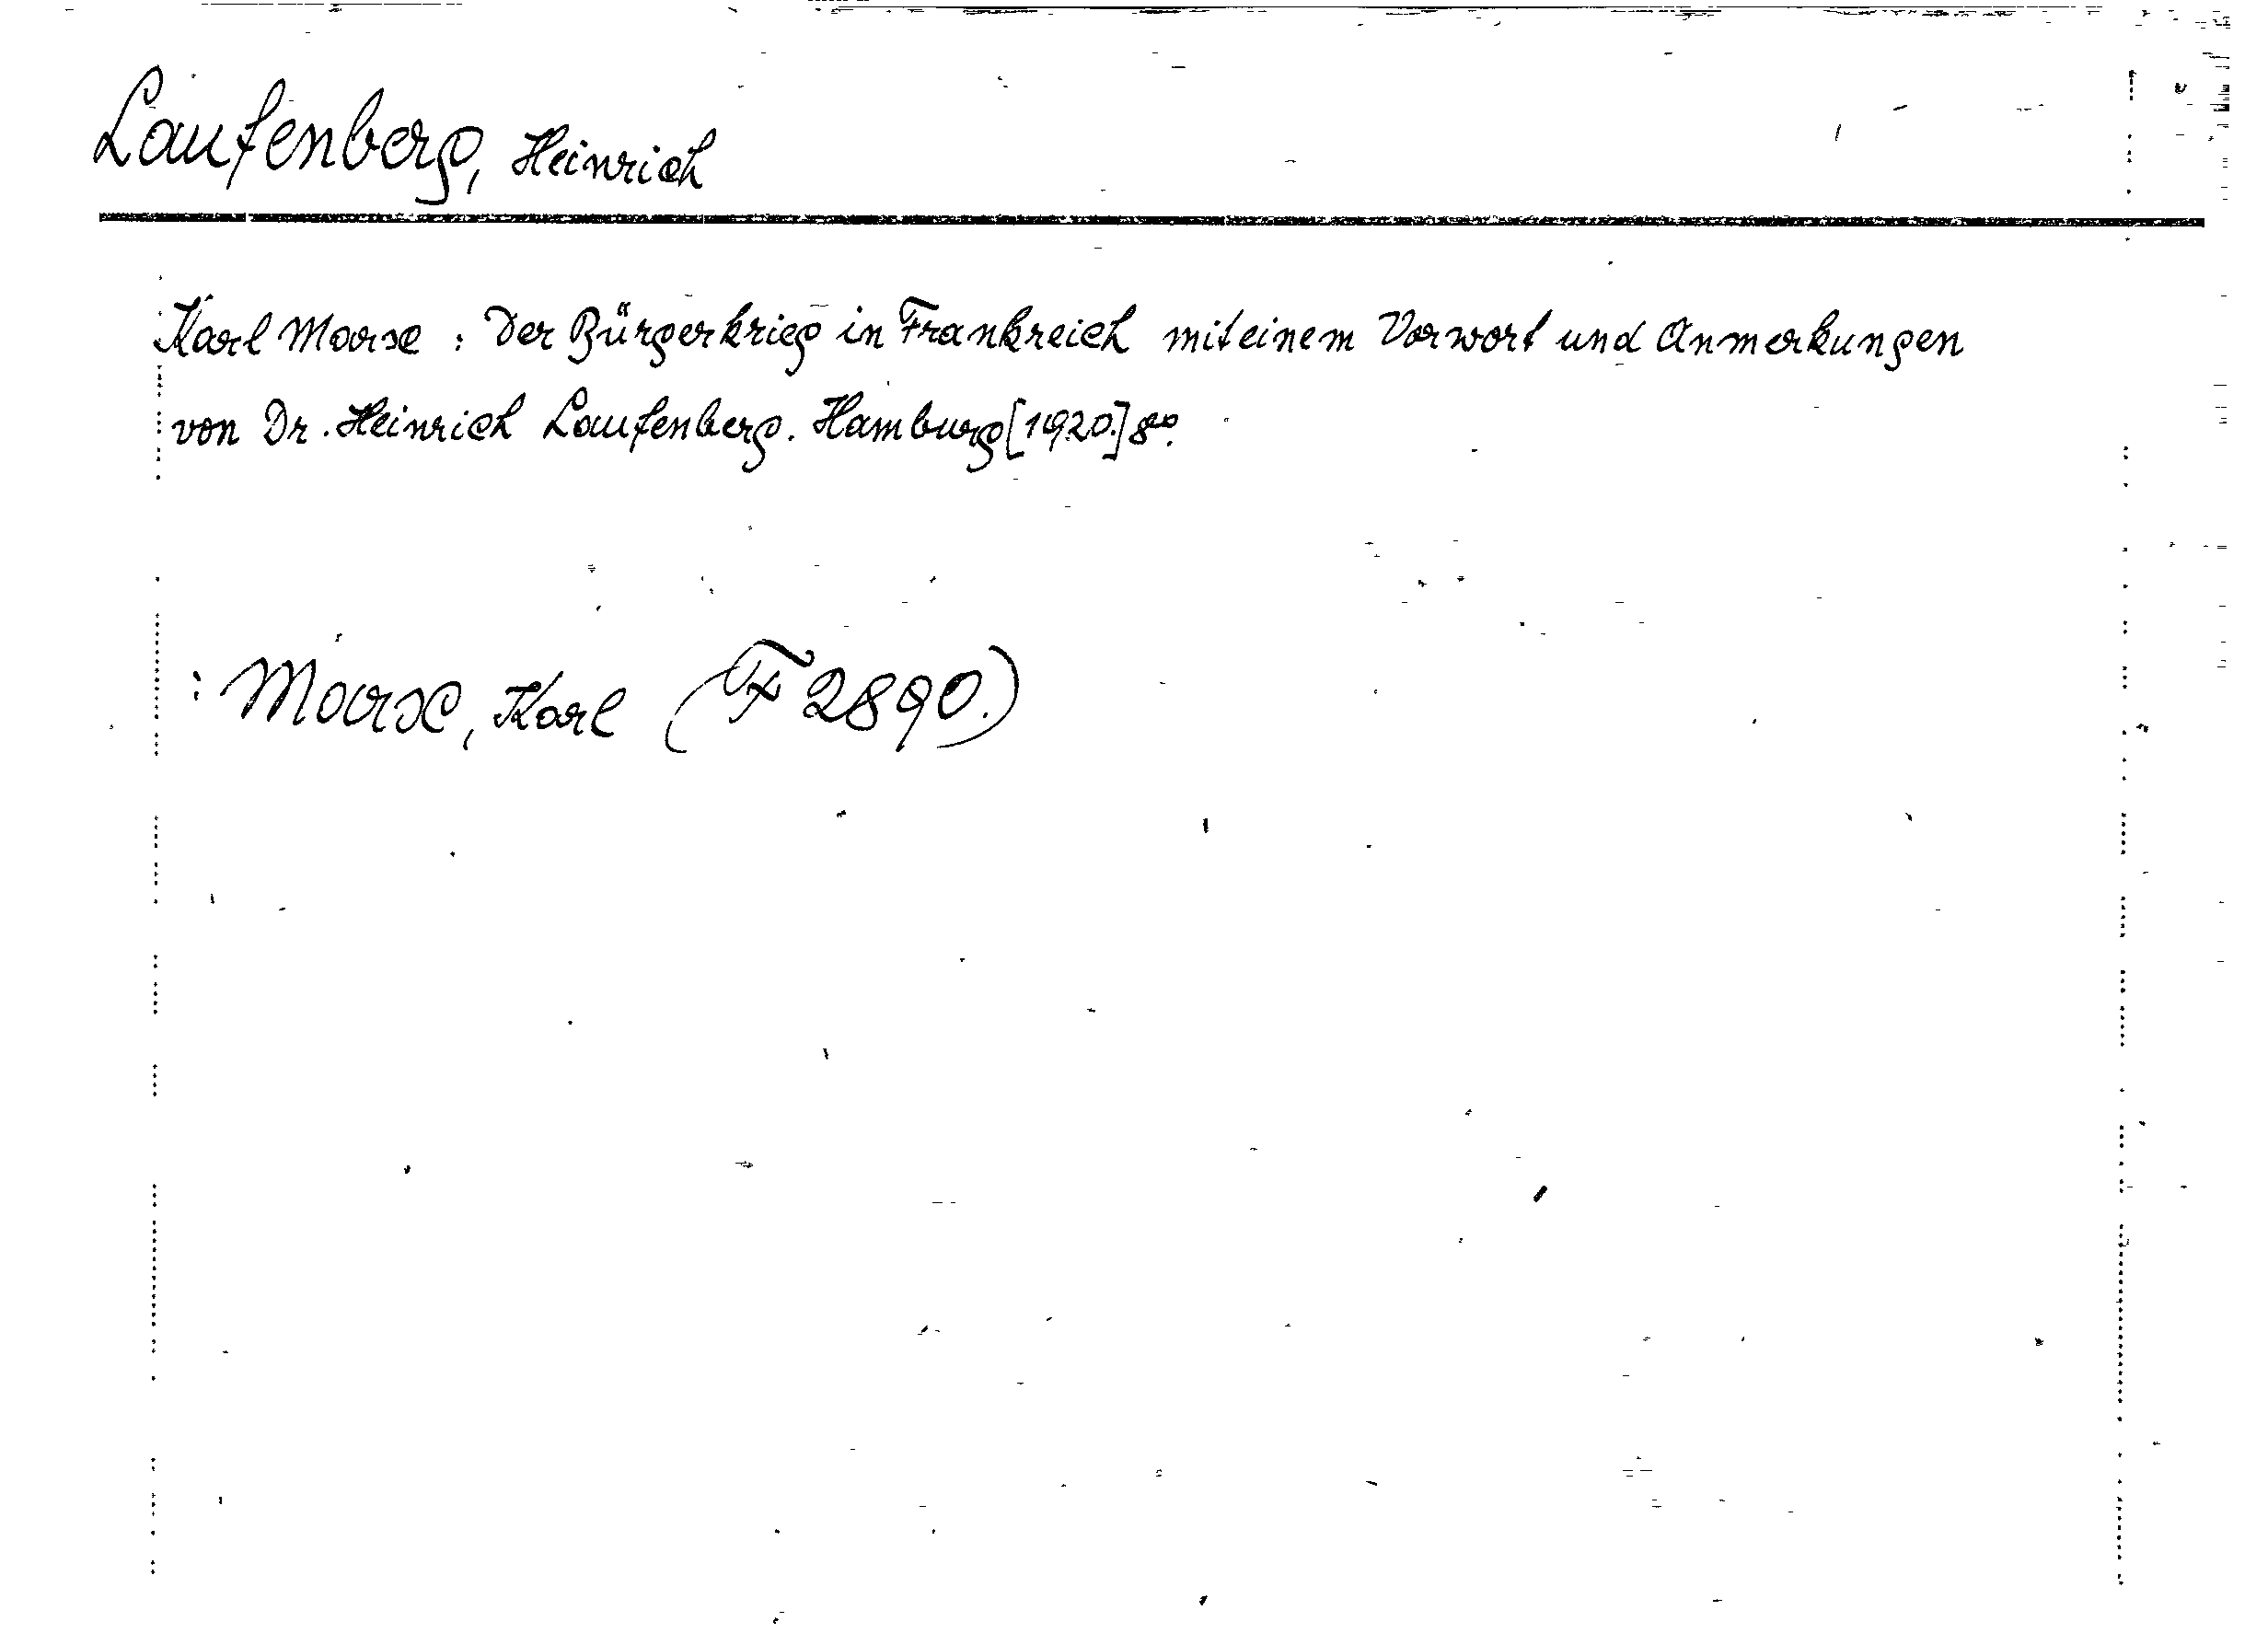 Laufenberg, Heinrich
Karl Marx : Der Bürgerkrieg in Frankreich mit einem Vorwort und Anmerkungen
von Dr. Heinrich Laufenberg. Hamburg [1920.] 8°.
: Marx, Karl (F 2890.)